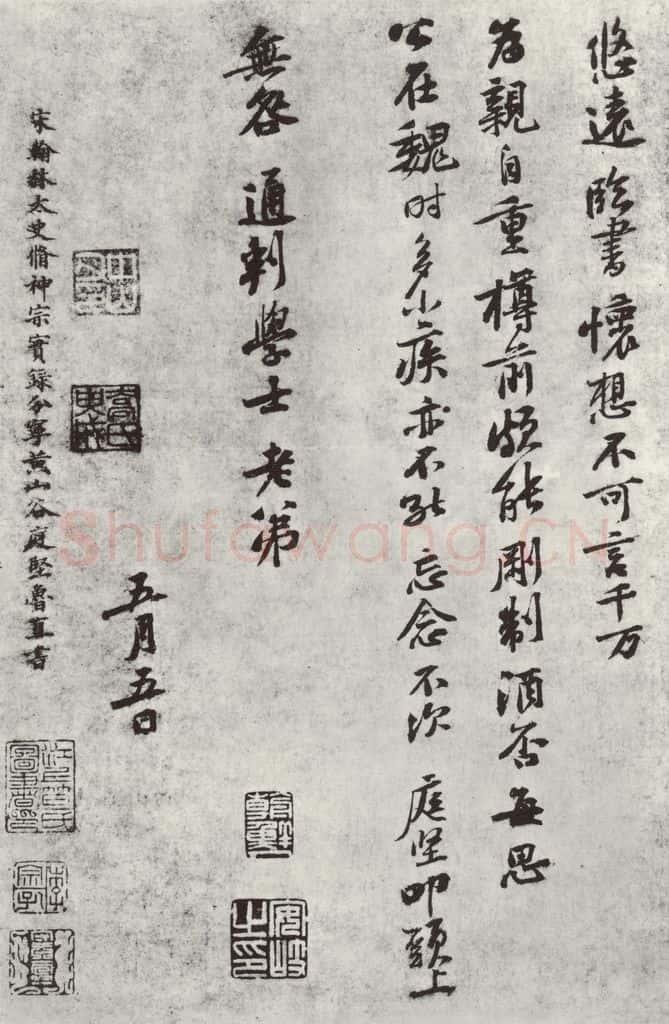 悠遠臨書懷想不可言千万
為親自重樽前頗能剛制酒否每思
公在魏时多小疾亦不能忘念不次 庭坚叩頭上
無咎通判學士老弟
五月五日
宋翰林太史脩神宗實錄分寧黄山谷庭堅魯直書
安岐之印
Shufawang.CN